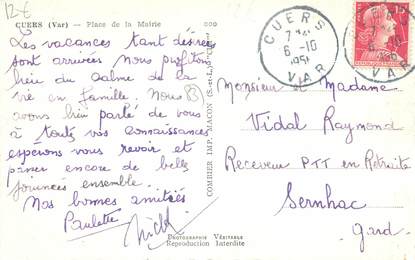 12€
CUERS (Var) - Place de la Mairie
Les vacances tant désirées
sont arrivées nous profitons
bien du calme de la
vie en famille. Nous
avons bien parlé de vous
à toutes vos connaissances
espérons vous revoir et
passer encore de belles
journées ensemble..
Nos bonnes amitiés
Paulette
COMBIER IMP. MACON (S.-et-L.)
PHOTOGRAPHIE VÉRITABLE
Reproduction Interdite
CUERS
6-10
VAR
15
Monsieur et Madame
Vidal Raymond
Receveur PTT en Retraite
Sernhac
Gard.